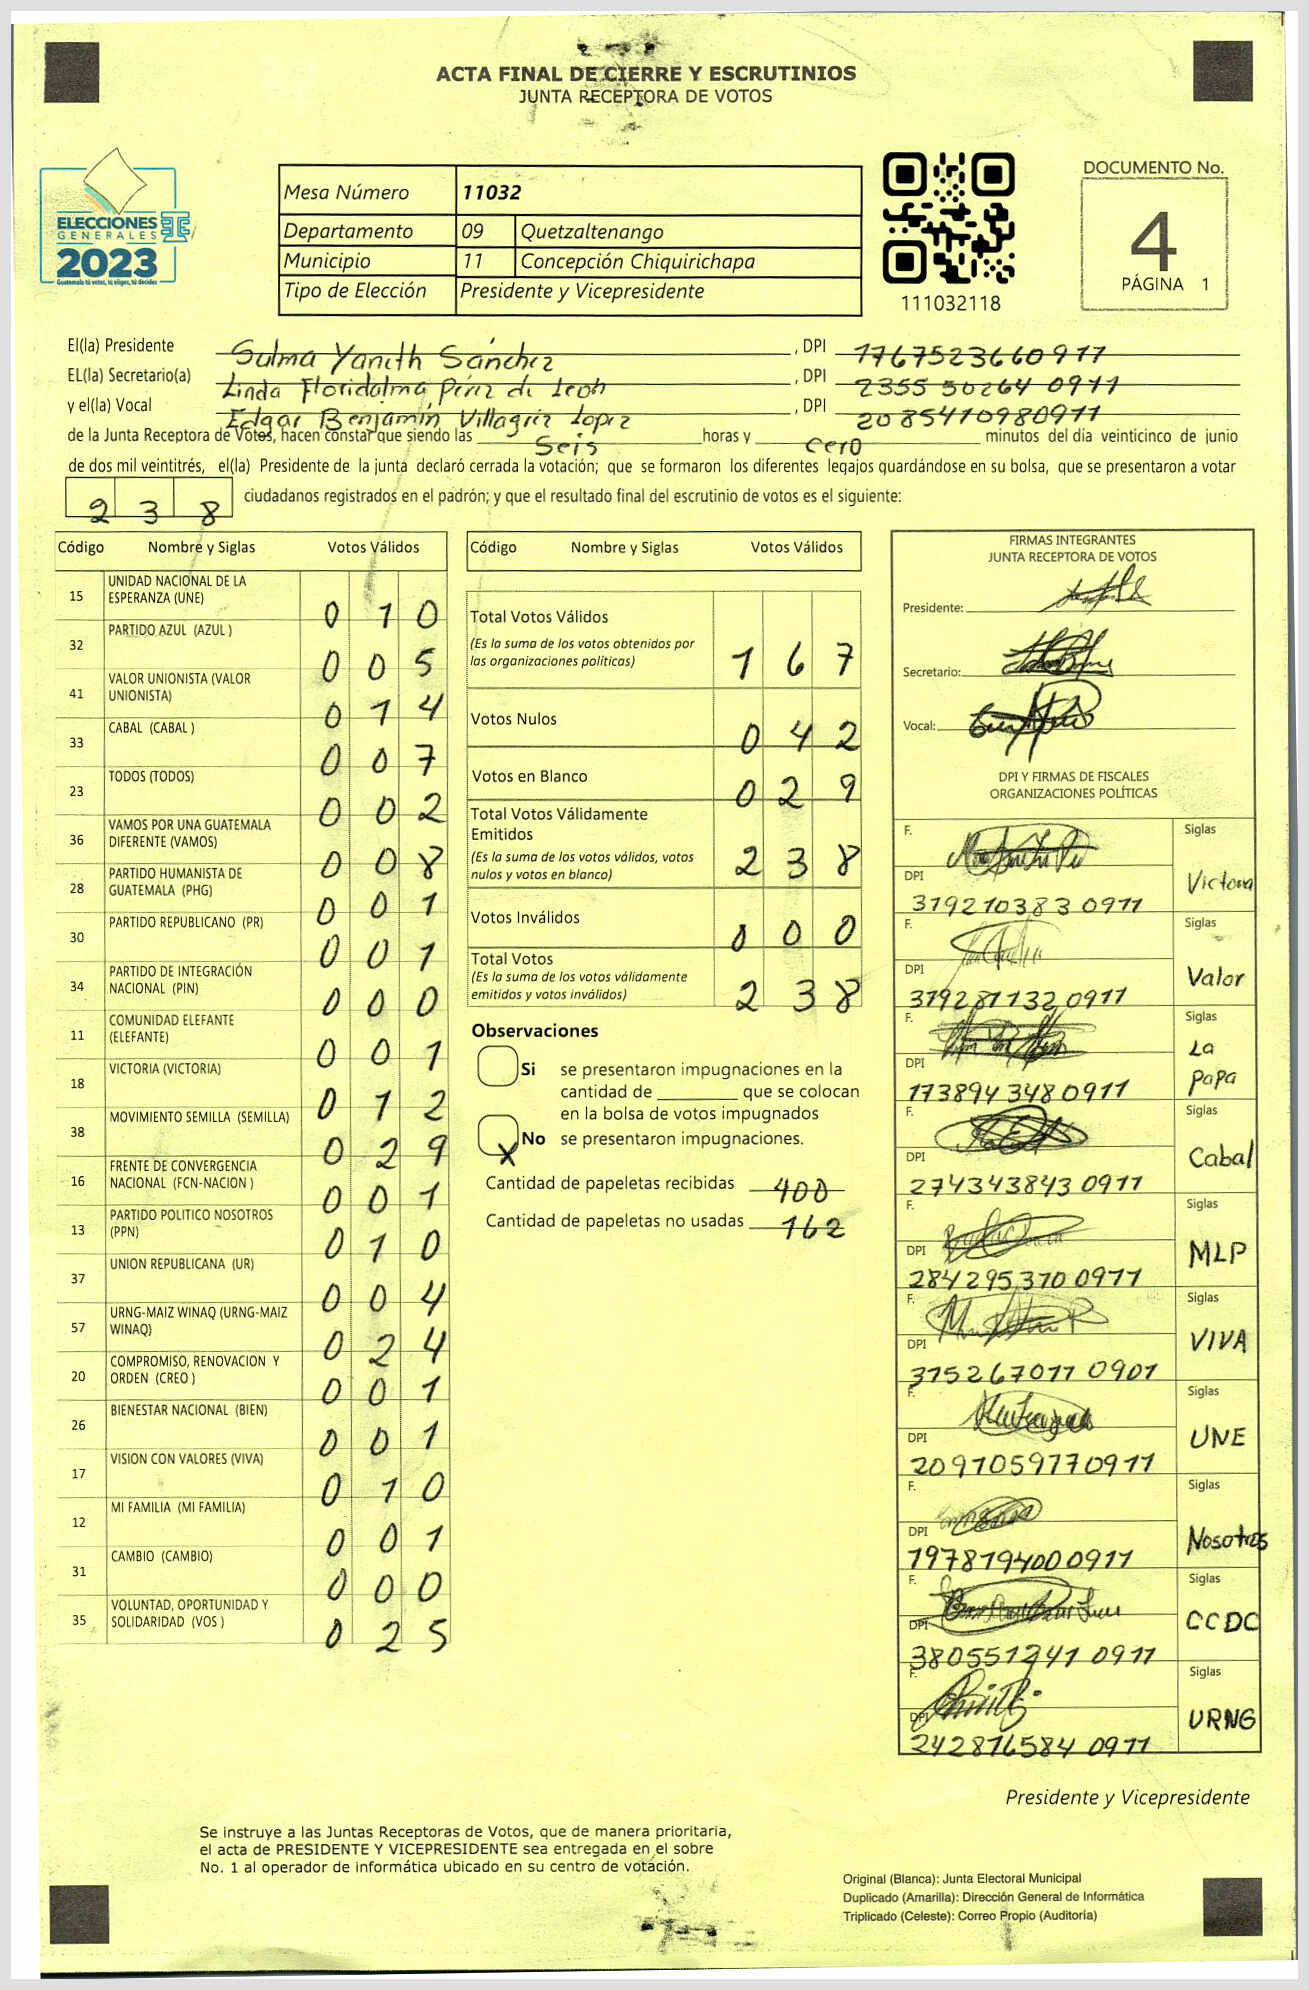 ACTA FINAL DE CIERRE Y ESCRUTINIOS
JUNTA RECEPTORA DE VOTOS
ELECCIONES
GENERALES
2023
Guatemala tú votas, tú eliges, tú decides
Mesa Número 11032
Departamento 09 Quetzaltenango
Municipio 11 Concepción Chiquirichapa
Tipo de Elección Presidente y Vicepresidente
111032118
DOCUMENTO No.
4
PÁGINA 1
El(la) Presidente Sulma Yaneth Sánchez , DPI 1767523660911
EL(la) Secretario(a) Linda Floridalma Pérez de León , DPI 2355 50264 0911
y el(la) Vocal Edgar Benjamín Villagrez Lopez , DPI 2085410980911
de la Junta Receptora de Votos, hacen constar que siendo las Seis horas y cero minutos del día veinticinco de junio
de dos mil veintitrés, el(la) Presidente de la junta declaró cerrada la votación; que se formaron los diferentes legajos guardándose en su bolsa, que se presentaron a votar
2 3 8 ciudadanos registrados en el padrón; y que el resultado final del escrutinio de votos es el siguiente:
Código Nombre y Siglas Votos Válidos
15 UNIDAD NACIONAL DE LA
ESPERANZA (UNE) 0 1 0
32 PARTIDO AZUL (AZUL ) 0 0 5
41 VALOR UNIONISTA (VALOR
UNIONISTA) 0 1 4
33 CABAL (CABAL ) 0 0 7
23 TODOS (TODOS) 0 0 2
36 VAMOS POR UNA GUATEMALA
DIFERENTE (VAMOS) 0 0 8
28 PARTIDO HUMANISTA DE
GUATEMALA (PHG) 0 0 1
30 PARTIDO REPUBLICANO (PR) 0 0 1
34 PARTIDO DE INTEGRACIÓN
NACIONAL (PIN) 0 0 0
11 COMUNIDAD ELEFANTE
(ELEFANTE) 0 0 1
18 VICTORIA (VICTORIA) 0 1 2
38 MOVIMIENTO SEMILLA (SEMILLA) 0 2 9
16 FRENTE DE CONVERGENCIA
NACIONAL (FCN-NACION ) 0 0 1
13 PARTIDO POLITICO NOSOTROS
(PPN) 0 1 0
37 UNION REPUBLICANA (UR) 0 0 4
57 URNG-MAIZ WINAQ (URNG-MAIZ
WINAQ) 0 2 4
20 COMPROMISO, RENOVACION Y
ORDEN (CREO ) 0 0 1
26 BIENESTAR NACIONAL (BIEN) 0 0 1
17 VISION CON VALORES (VIVA) 0 1 0
12 MI FAMILIA (MI FAMILIA) 0 0 1
31 CAMBIO (CAMBIO) 0 0 0
35 VOLUNTAD, OPORTUNIDAD Y
SOLIDARIDAD (VOS ) 0 2 5
Código Nombre y Siglas Votos Válidos
Total Votos Válidos
(Es la suma de los votos obtenidos por
las organizaciones políticas) 1 6 7
Votos Nulos 0 4 2
Votos en Blanco 0 2 9
Total Votos Válidamente
Emitidos
(Es la suma de los votos válidos, votos
nulos y votos en blanco) 2 3 8
Votos Inválidos 0 0 0
Total Votos
(Es la suma de los votos válidamente
emitidos y votos inválidos) 2 3 8
Observaciones
Si se presentaron impugnaciones en la
cantidad de ________ que se colocan
en la bolsa de votos impugnados
X No se presentaron impugnaciones.
Cantidad de papeletas recibidas 400
Cantidad de papeletas no usadas 162
FIRMAS INTEGRANTES
JUNTA RECEPTORA DE VOTOS
Presidente:
Secretario:
Vocal:
DPI Y FIRMAS DE FISCALES
ORGANIZACIONES POLÍTICAS
F. Siglas
DPI Victoria
319210383 0911
F. Siglas
DPI Valor
319281132 0911
F. Siglas
DPI La Papa
173894348 0911
F. Siglas
DPI Cabal
274343843 0911
F. Siglas
DPI MLP
284295370 0911
F. Siglas
DPI VIVA
315267011 0901
F. Siglas
DPI UNE
2091059770911
F. Siglas
DPI Nosotros
1978194000911
F. Siglas
DPI CCDC
380551241 0911
F. Siglas
DPI URNG
242816584 0911
Presidente y Vicepresidente
Se instruye a las Juntas Receptoras de Votos, que de manera prioritaria,
el acta de PRESIDENTE Y VICEPRESIDENTE sea entregada en el sobre
No. 1 al operador de informática ubicado en su centro de votación.
Original (Blanca): Junta Electoral Municipal
Duplicado (Amarilla): Dirección General de Informática
Triplicado (Celeste): Correo Propio (Auditoría)